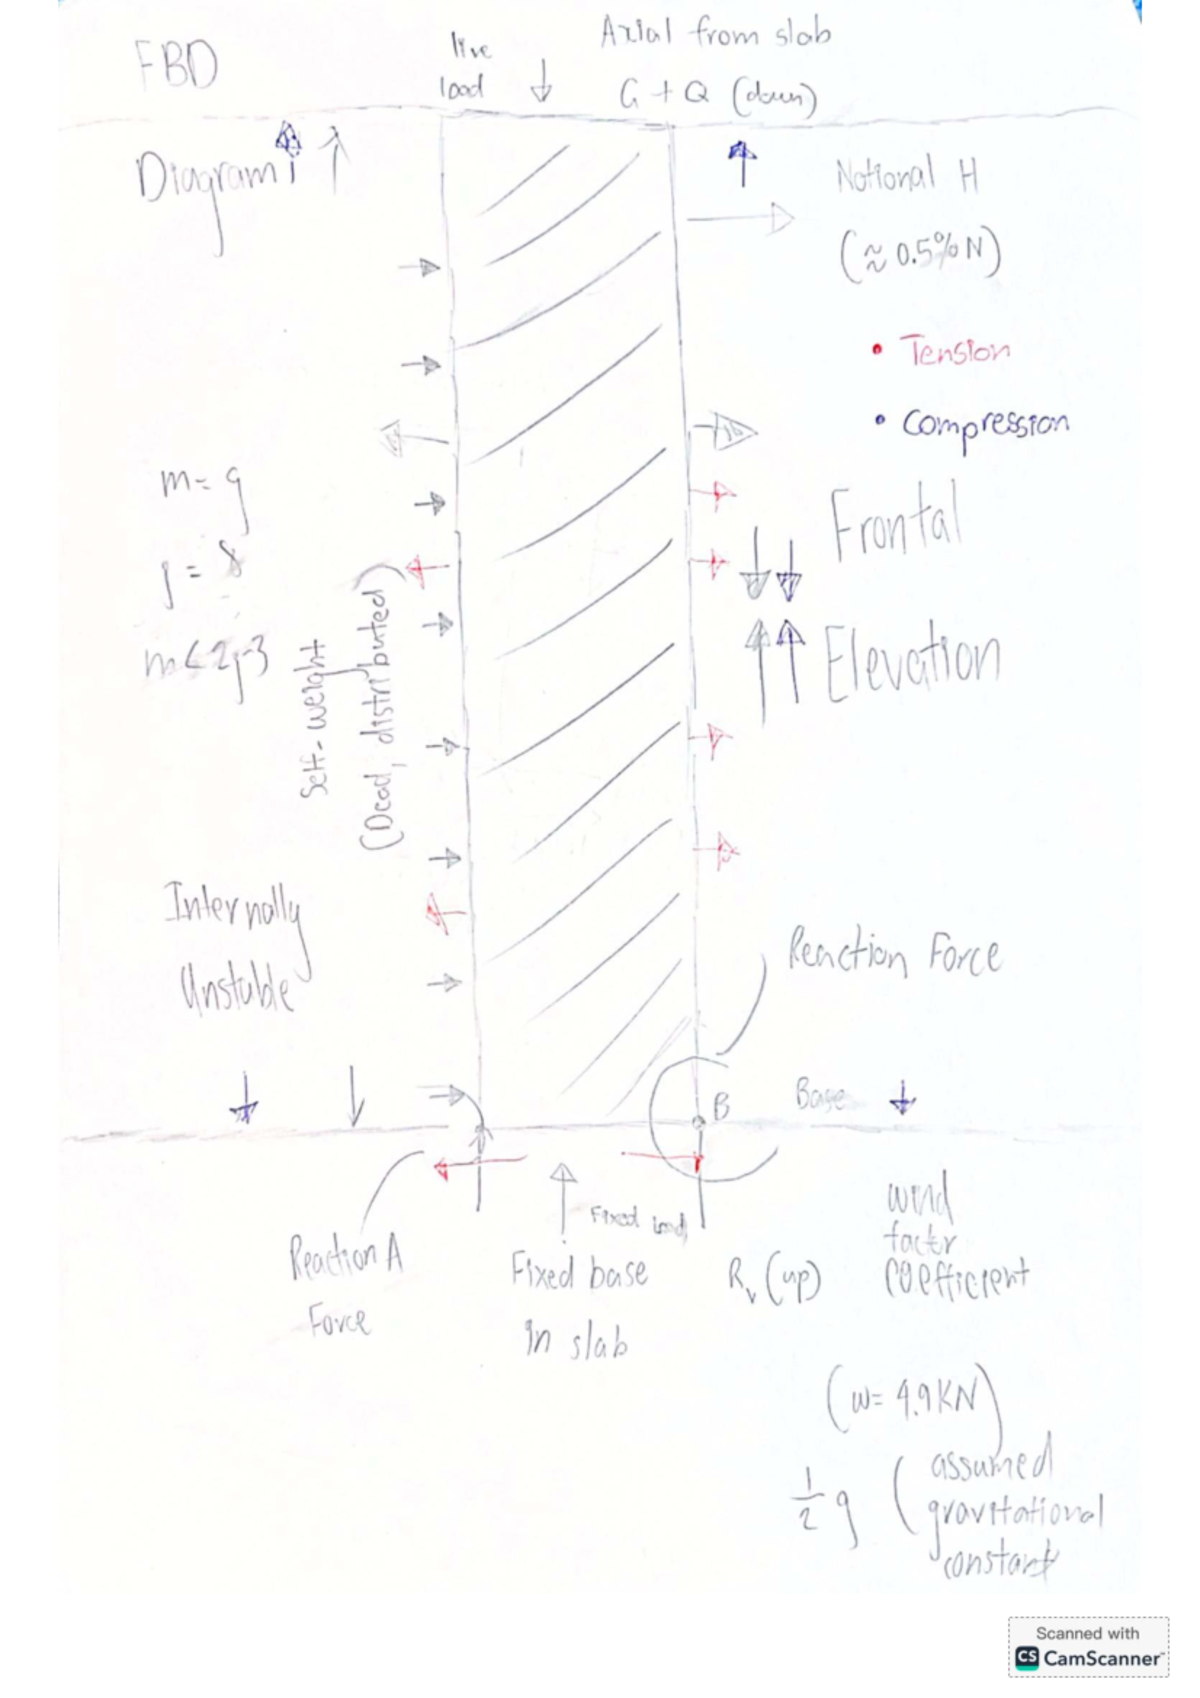 FBD
Diagram
live
load
Axial from slab
G + Q (down)
Notional H
(≈ 0.5% N)
• Tension
• Compression
Frontal
Elevation
m = 9
j = 8
m < 2j-3
Self-weight
(Dead, distributed)
Internally
Unstable
Reaction Force
B
Base
Reaction A
Force
Fixed load
Fixed base
in slab
Rv (up)
wind
factor
coefficient
(w = 4.9 KN)
1/2 g (assumed
gravitational
constant
Scanned with
CS CamScanner